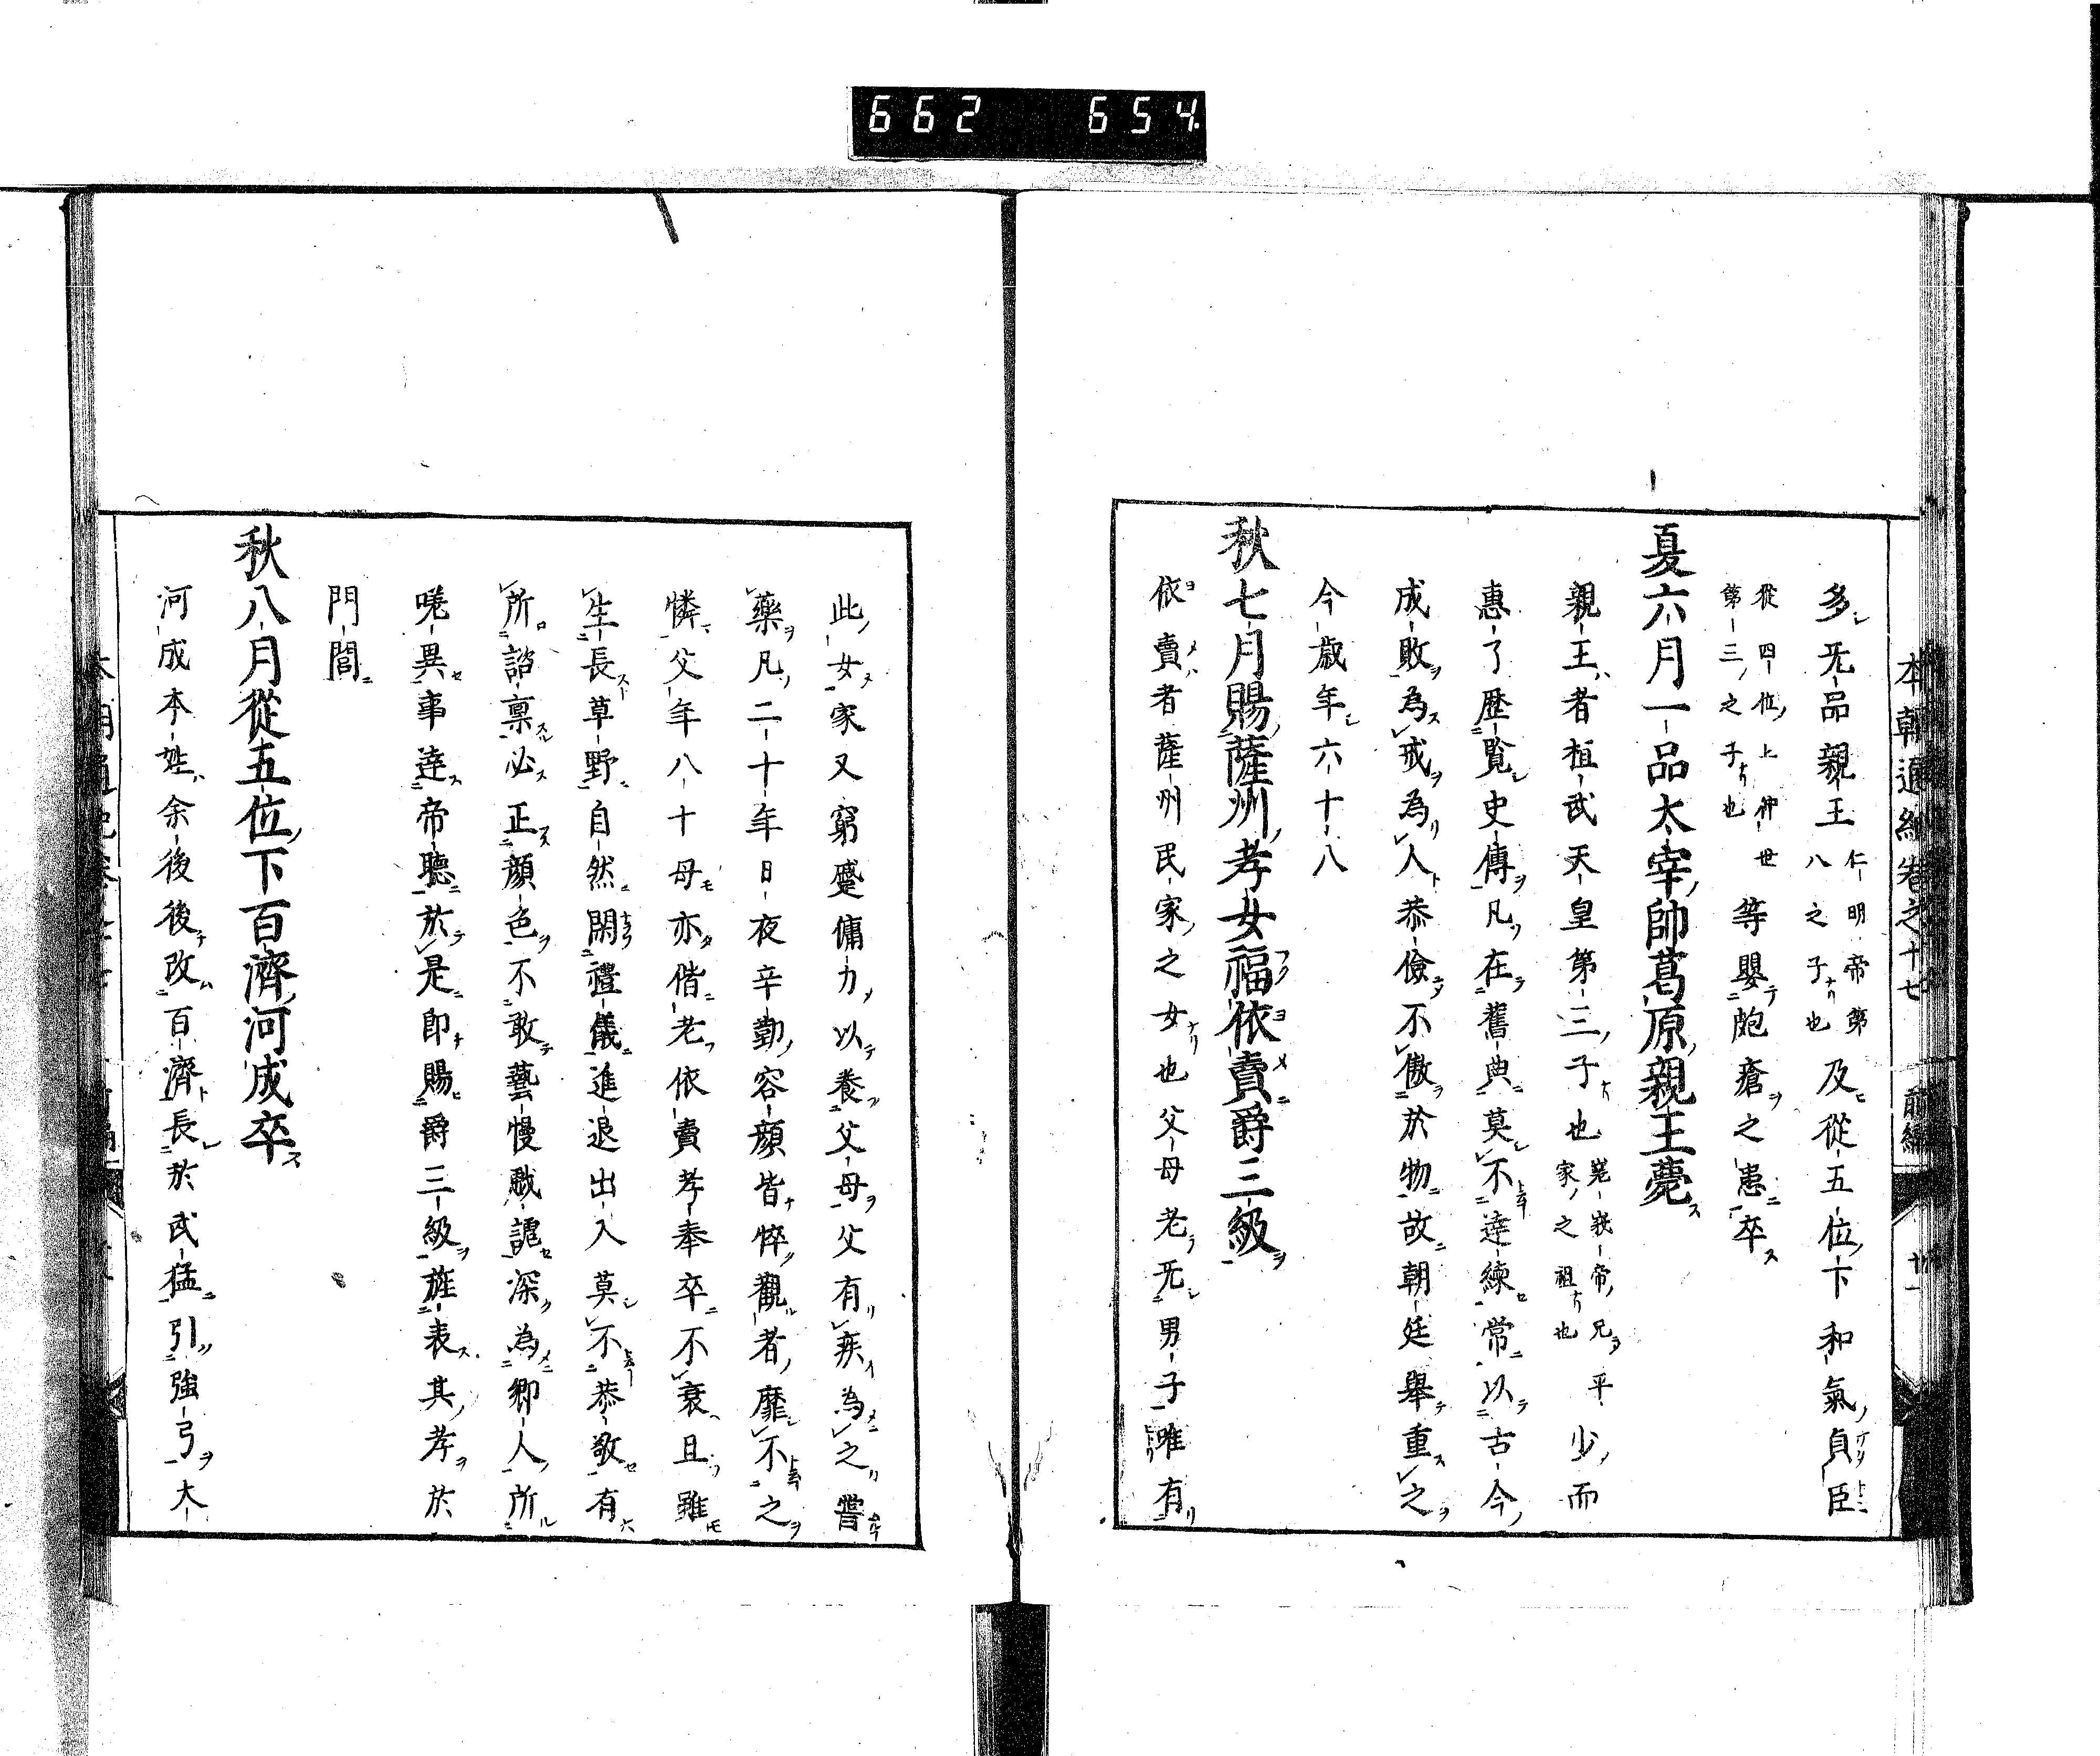 662 654
本朝通紀卷之十七 前編 十一
多无品親王仁明帝第八之子也及從五位下和氣貞臣
從四位上仲世第三之子也等嬰皰瘡之患卒
夏六月一品太宰帥葛原親王薨
親王者桓武天皇第三子也嵯峨帝兄平家之祖也少而
惠了歷覧史傳凡在舊典莫不達練常以古今
成敗為戒為人恭儉不傲於物故朝廷舉重之
今歲年六十八
秋七月賜薩州孝女福依賣爵三級
依賣者薩州民家之女也父母老无男子唯有
此女家又窮蹙傭力以養父母父有疾為之嘗
藥凡二十年日夜辛勤容顔皆悴觀者靡不之
憐父年八十母亦偕老依賣孝奉卒不衰且雖
生長草野自然閑禮儀進退出入莫不恭敬有
所諮稟必正顔色不敢藝慢戲謔深為鄉人所
嘆異事達帝聽於是即賜爵三級旌表其孝於
門閭
秋八月從五位下百濟河成卒
河成本姓余後後改百濟長於武猛引強弓大